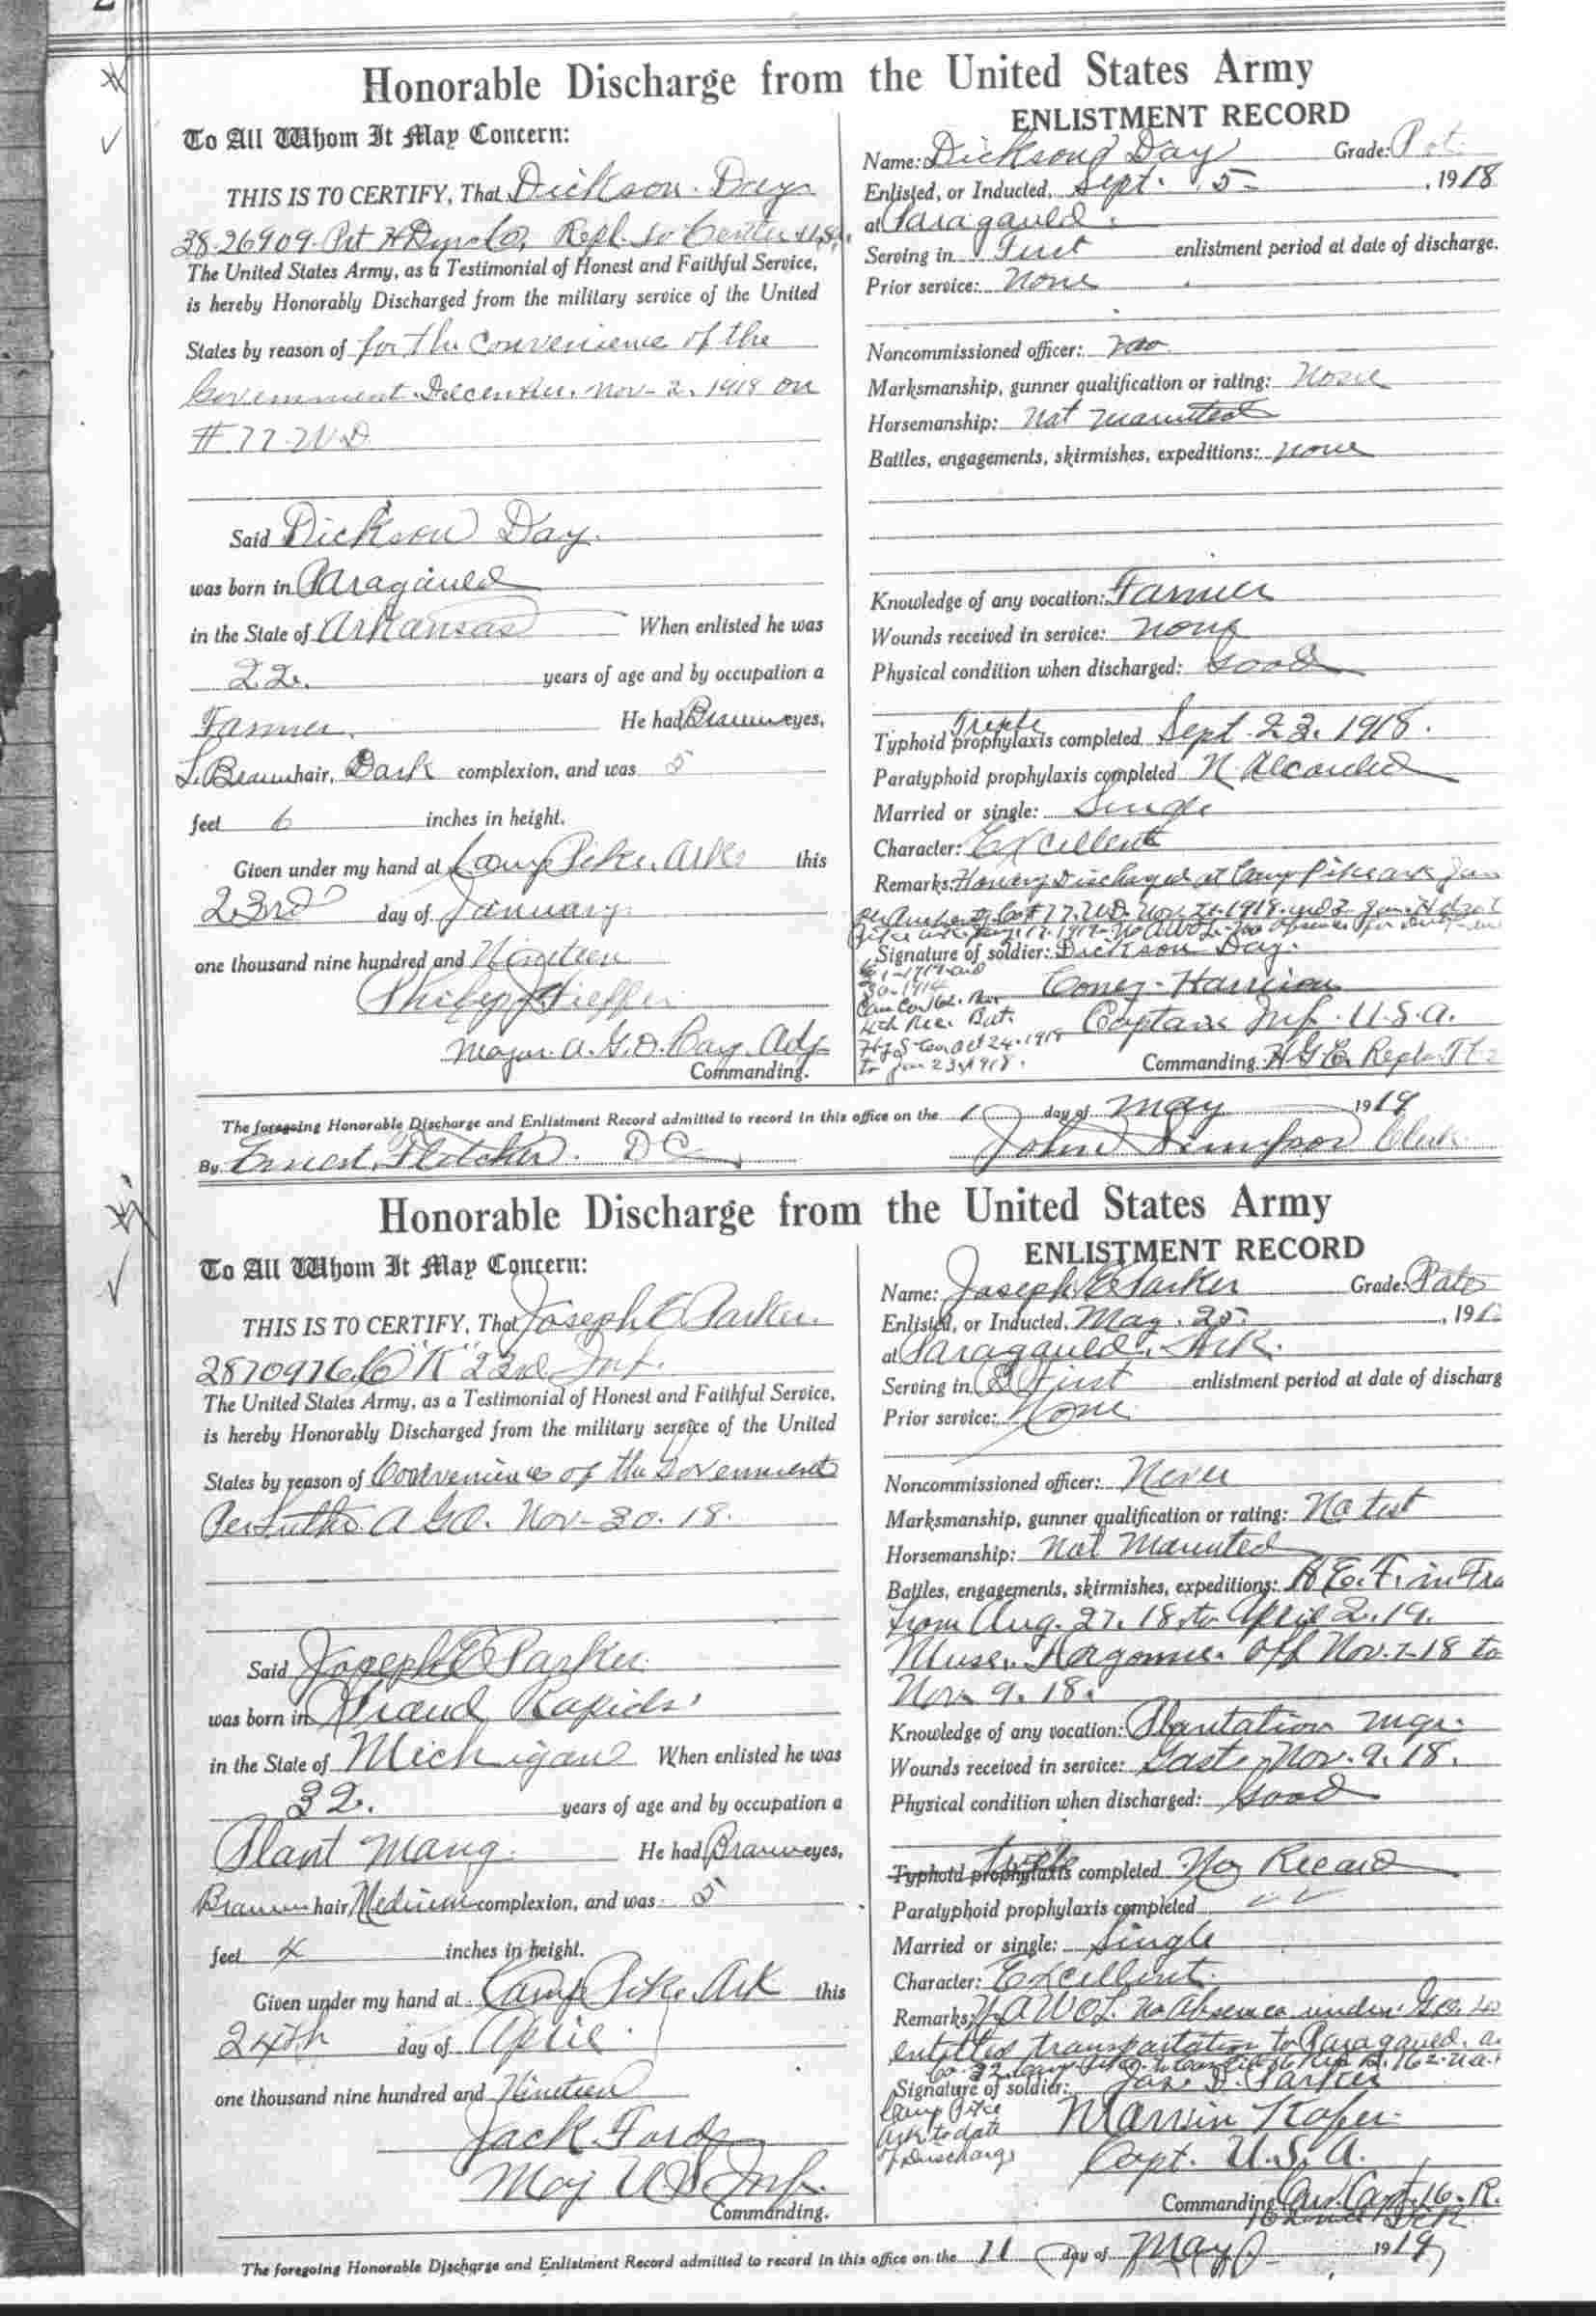 Honorable Discharge from the United States Army
To All Whom It May Concern:
THIS IS TO CERTIFY, That Dickson Day
38-26909 Pvt
The United States Army, as a Testimonial of Honest and Faithful Service,
is hereby Honorably Discharged from the military service of the United
States by reason of for the Convenience of the
Government. Nov- 2. 1918 on
#77 W.D.
Said Dickson Day.
was born in Paragauld
in the State of Arkansas When enlisted he was
22. years of age and by occupation a
Farmer. He had Brown eyes,
L. Brown hair, Dark complexion, and was 5
feet 6 inches in height.
Given under my hand at Camp Pike, Ark. this
23rd day of January
one thousand nine hundred and Nineteen
Major. A.G.D. Adj.
Commanding.
ENLISTMENT RECORD
Name: Dickson Day Grade: Pvt.
Enlisted, or Inducted, Sept. 5- , 1918
at Paragauld.
Serving in First enlistment period at date of discharge.
Prior service: None
Noncommissioned officer: No
Marksmanship, gunner qualification or rating: None
Horsemanship: Not Mounted
Battles, engagements, skirmishes, expeditions: None
Knowledge of any vocation: Farmer
Wounds received in service: None
Physical condition when discharged: Good
Triple
Typhoid prophylaxis completed Sept. 23. 1918.
Paratyphoid prophylaxis completed
Married or single: Single
Character: Excellent
Remarks: Discharged at Camp Pike Ark Jan
Signature of soldier: Dickson Day.
Harrison
Captain Inf. U.S.A.
Commanding.
The foregoing Honorable Discharge and Enlistment Record admitted to record in this office on the 1 day of May 1919
By Ernest Fletcher. D C John Simpson Clerk
Honorable Discharge from the United States Army
To All Whom It May Concern:
THIS IS TO CERTIFY, That Joseph E Parker.
2870976 Co "K" 23rd Inf.
The United States Army, as a Testimonial of Honest and Faithful Service,
is hereby Honorably Discharged from the military service of the United
States by reason of Convenience of the Government
A.G.O. Nov- 30. 18.
Said Joseph E Parker
was born in Grand Rapids
in the State of Michigan When enlisted he was
32. years of age and by occupation a
Plant Mang. He had Brown eyes,
Brown hair Medium complexion, and was 5
feet 4 inches in height.
Given under my hand at Camp Pike, Ark this
24th day of April
one thousand nine hundred and Nineteen
Jack Ford
Maj. U S Inf.
Commanding.
ENLISTMENT RECORD
Name: Joseph E Parker Grade:
Enlisted, or Inducted, May. 25 , 191
at Paragauld, Ark.
Serving in First enlistment period at date of discharg
Prior service: None
Noncommissioned officer: Never
Marksmanship, gunner qualification or rating: No test
Horsemanship: Not Mounted
Battles, engagements, skirmishes, expeditions: A.E.F. in Fra
from Aug. 27. 18 to April 2. 19.
Off Nov. 7-18 to
Nov. 9. 18.
Knowledge of any vocation: Plantation Mgr.
Wounds received in service: Nov. 9. 18.
Physical condition when discharged: Good
Triple
Typhoid prophylaxis completed No Record
Paratyphoid prophylaxis completed
Married or single: Single
Character: Excellent.
Remarks: AWOL. No Absence under G.O.
entitled transportation to Paragauld. a.
Signature of soldier: Parker
Camp Pike
Ark to date
of Discharge
Marvin
Capt. U.S.A.
Commanding
The foregoing Honorable Discharge and Enlistment Record admitted to record in this office on the 11 day of May 1919